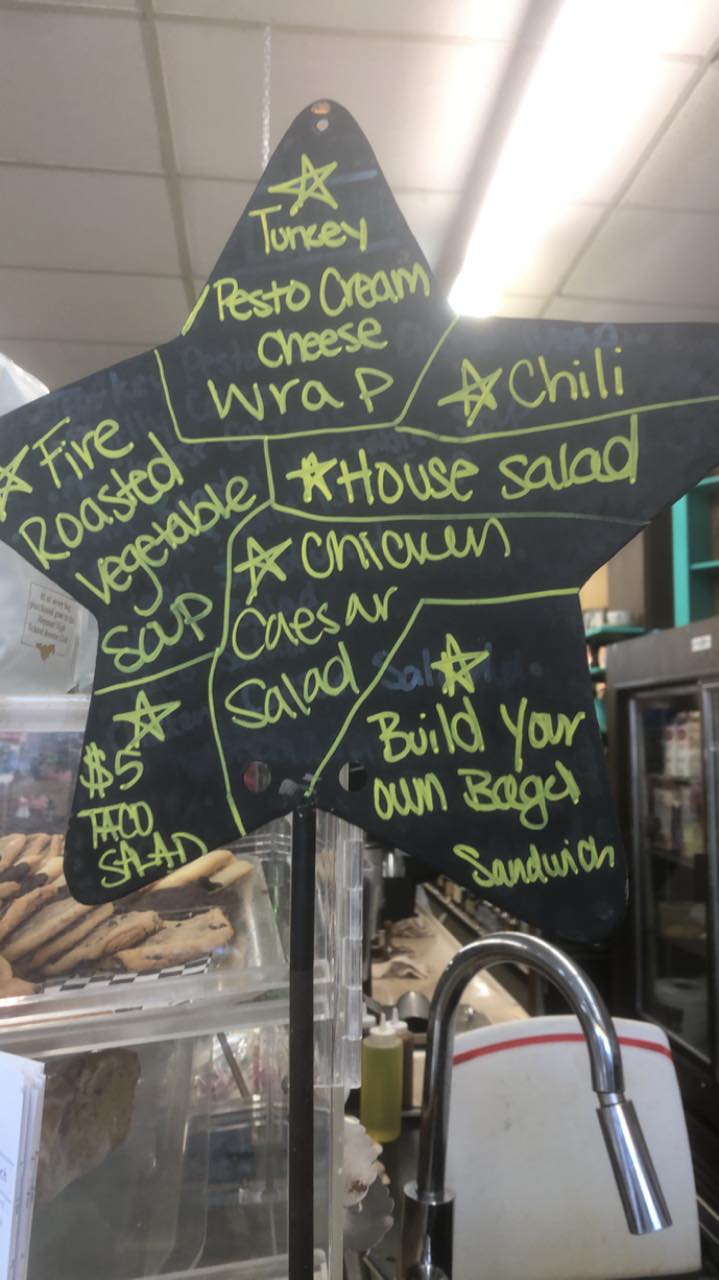 Turkey
Pesto Cream
cheese
wrap
Chili
House salad
Fire
Roasted
vegetable
soup
chicken
Caesar
Salad
$5
TACO
SALAD
Build Your
own Bagel
Sandwich